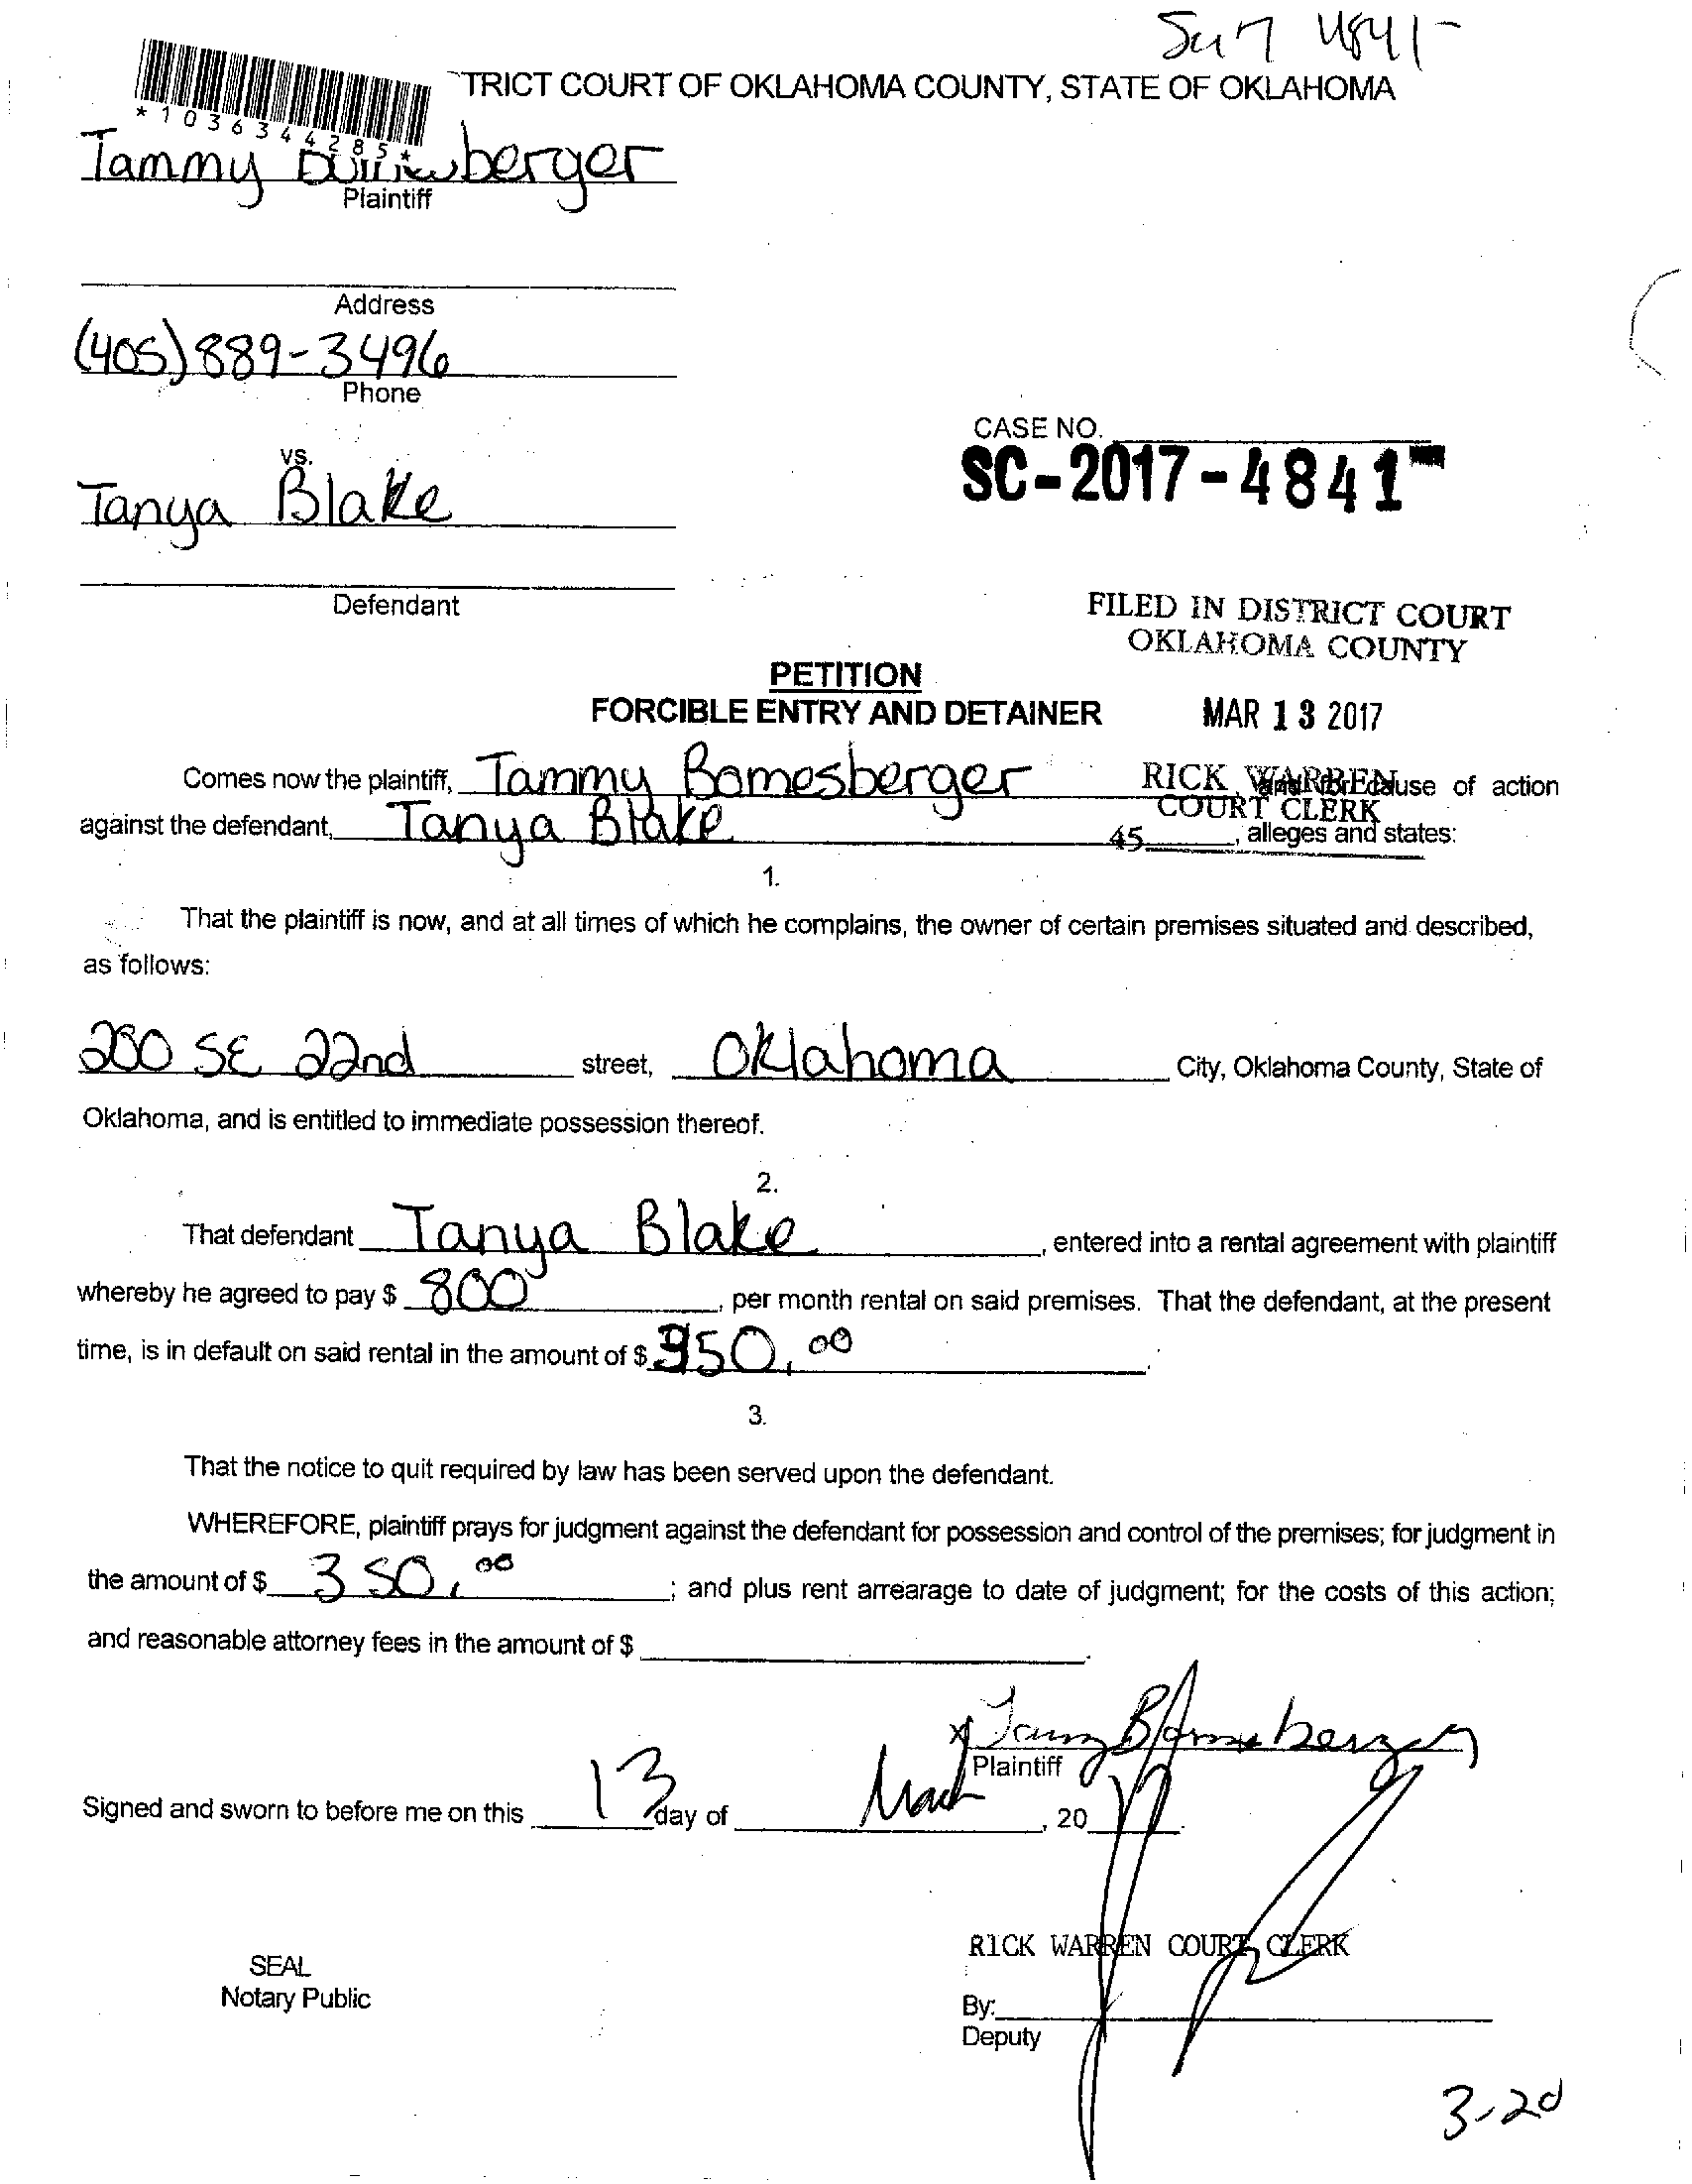 4841-
TRICT COURT OF OKLAHOMA COUNTY, STATE OF OKLAHOMA
*1036344285*
Tammy berger
Plaintiff
Address
(405) 889-3496
Phone
CASE NO.
vs.
SC-2017-4841
Tanya Blake
Defendant
FILED IN DISTRICT COURT
OKLAHOMA COUNTY
PETITION
FORCIBLE ENTRY AND DETAINER
MAR 13 2017
Comes now the plaintiff, Tammy Bomesberger and for cause of action
RICK WARREN
COURT CLERK
against the defendant, Tanya Blake 45 , alleges and states:
1.
That the plaintiff is now, and at all times of which he complains, the owner of certain premises situated and described,
as follows:
SE 22nd street, Oklahoma City, Oklahoma County, State of
Oklahoma, and is entitled to immediate possession thereof.
2.
That defendant Tanya Blake , entered into a rental agreement with plaintiff
whereby he agreed to pay $ 800 , per month rental on said premises. That the defendant, at the present
time, is in default on said rental in the amount of $ 50.00 .
3.
That the notice to quit required by law has been served upon the defendant.
WHEREFORE, plaintiff prays for judgment against the defendant for possession and control of the premises; for judgment in
the amount of $ 350.00 ; and plus rent arrearage to date of judgment; for the costs of this action;
and reasonable attorney fees in the amount of $ .
x Tammy Bomesberger
Plaintiff
Signed and sworn to before me on this 13 day of March , 20 17 .
RICK WARREN COURT CLERK
SEAL
Notary Public
By:
Deputy
3-20